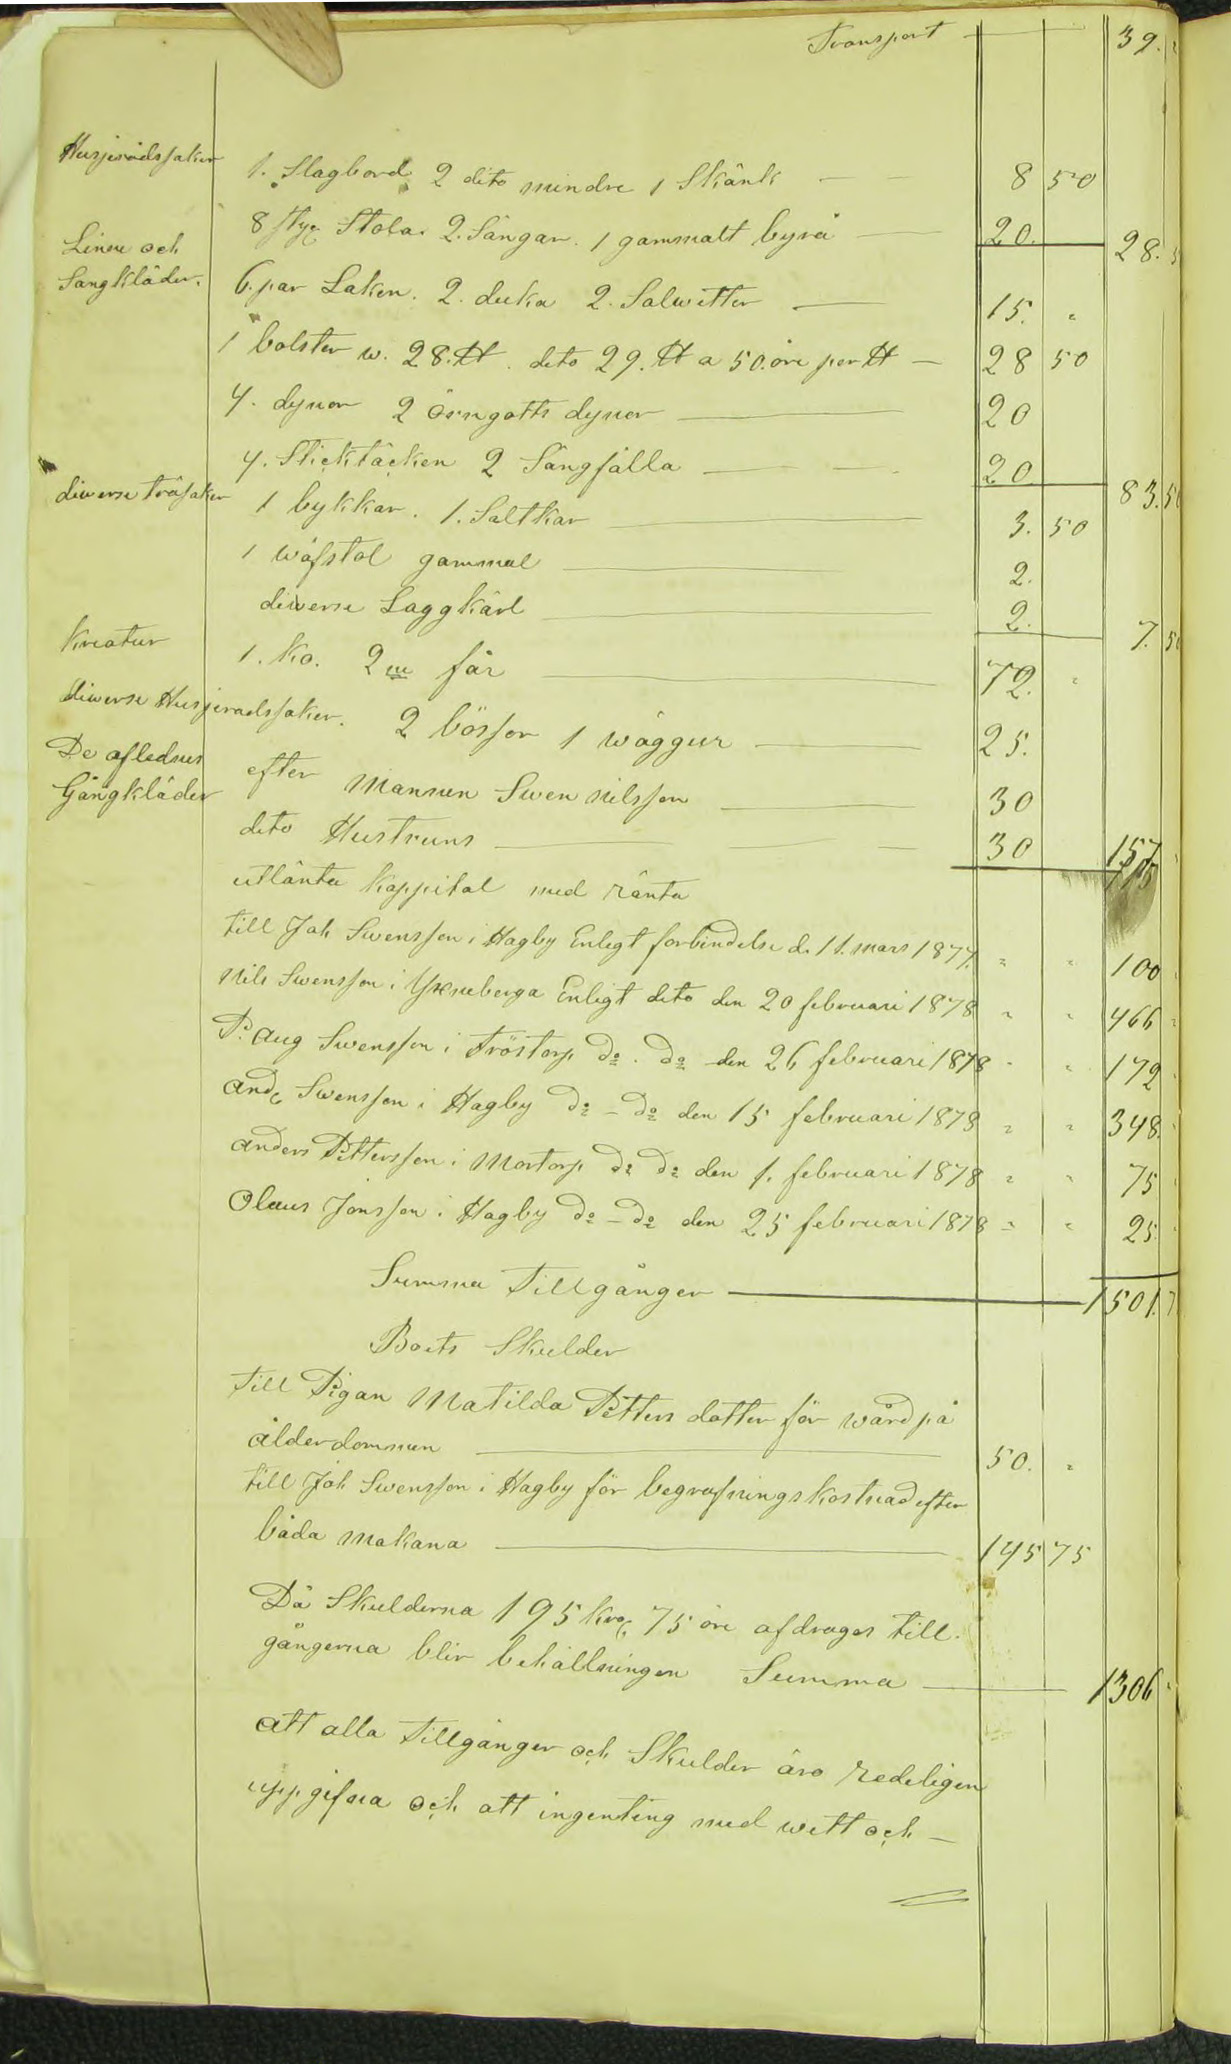 Transport 39.
Husjerådssaker 1. Slagbord 2 dito mindre 1 Skänk 8 50
8 styc Stolar 2. Sängar. 1 gammalt byrå 20. 28.
Linne och
Sängkläder. 6. par Laken. 2. duka 2. Salwetter 15. "
1 bolster w. 28. ℔. dito 29. ℔ a 50. öre per ℔ 28 50
4. dynor 2 örngotts dynor 20
4. Sticktäcken 2 Sängfälla 20 83. 50
diverse träsaker 1 bykkar. 1. Saltkar 3. 50
1 wäfstol gammal 2.
diverse Laggkärl 2. 7. 50
Kreatur 1. ko. 2ne får 72. "
diverse Husjeradssaker. 2 bössor 1 wäggur 25.
De aflednes
Gångkläder efter Mannen Swen Nilsson 30
dito Hustruns 30 157
utlånta kappital med ränta
till Joh Swensson i Hagby Enligt forbindelse d. 11. mars 1877. " " 100
Nils Swensson i Yxneberga Enligt dito den 20 februari 1878 " " 466
P. Aug Swensson i Tröstorp do. do den 26 februari 1878 " " 172
And. Swensson i Hagby do - do den 15 februari 1878 " " 348.
Anders Pettersson i Mortorp do do den 1. februari 1878 " " 75
Olaus Jonsson i Hagby do - do den 25 februari 1878 " " 25
Summa Tillgånger 1501.
Boets Skulder
Till Pigan Matilda Petters dotter för wård på
ålderdommen 50. "
till Joh Swensson i Hagby för begrafningskostnad efter
båda makana 145 75
Då Skulderna 195 kr. 75 öre afdrages till
gångerna blir behållningen Summa 1306
Att alla Tillgånger och Skulder äro redeligen
uppgifna och att ingenting med wett och